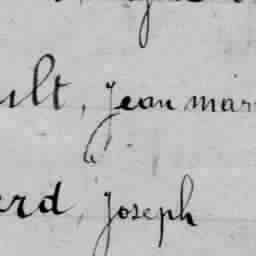 ult, jean mar
erd, joseph